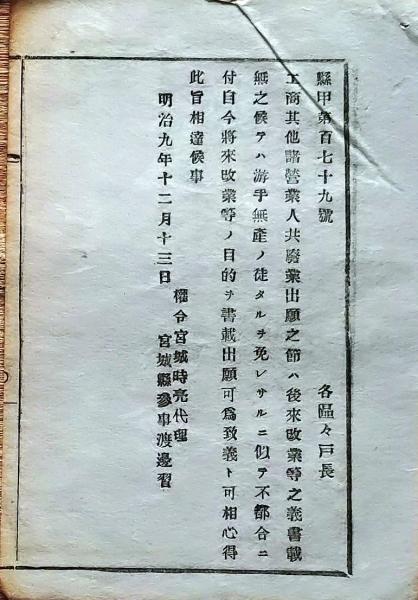 縣甲第百七十九號
各區々戸長
工商其他諸營業人共廢業出願之節ハ後來改業等之義書載
無之候テハ游手無產ノ徒タルヲ免レサルニ似テ不都合ニ
付自今將來改業等ノ目的ヲ書載出願可為致義ト可相心得
此旨相達候事
明治九年十二月十三日
權令宮城時亮代理
宮城縣參事渡邊習